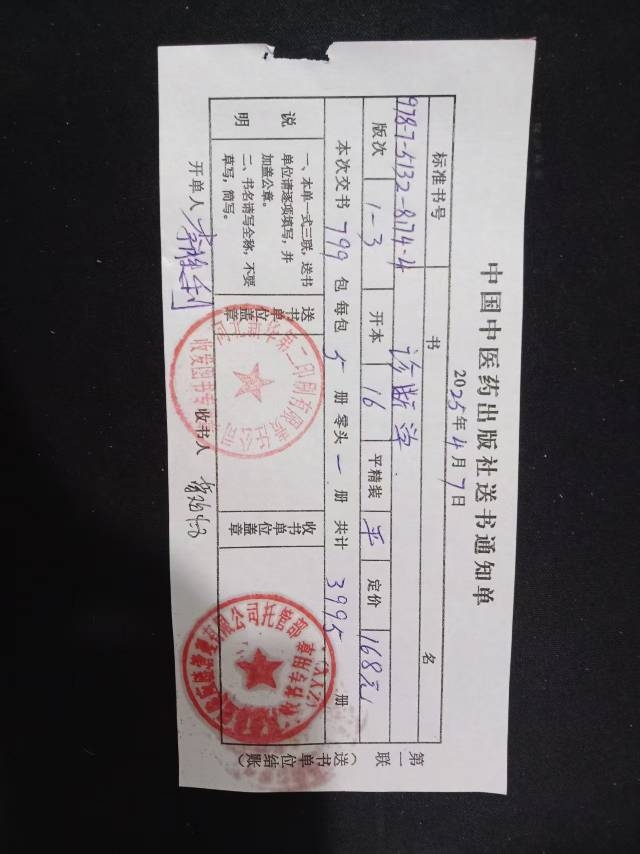 中国中医药出版社送书通知单
2025年4月7日
标准书号 书 名
978-7-5132-8174-4 诊断学
版次 1-3 开本 16 平精装 平 定价 168元
本次交书 799 包 每包 5 册 零头 一 册 共计 3995 册
说明
一、本单一式三联，送书单位请逐项填写，并加盖公章。
二、书名请写全称，不要草写，简写。
送书单位盖章
第二印刷有限责任公司
收发图书专
收书单位盖章
有限公司托管部
开单人 李 利 收书人
第一联（送书单位结账）